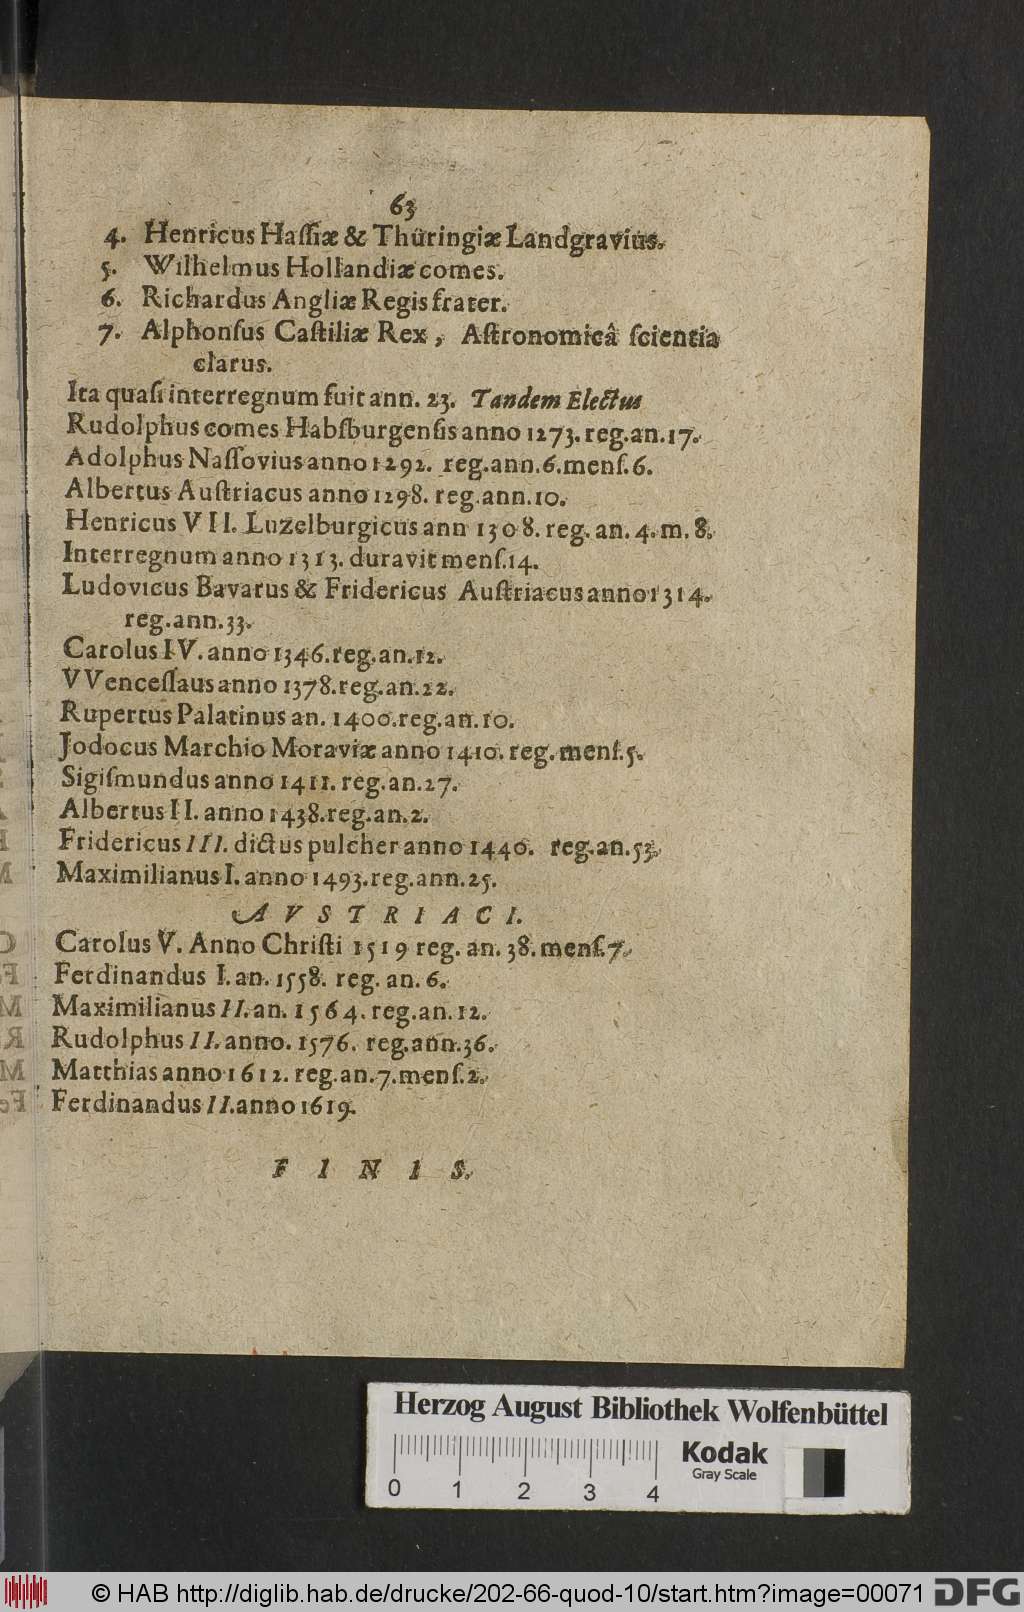 63
4. Henricus Haſſiæ & Thüringiæ Landgravius.
5. Wilhelmus Hollandiæ comes.
6. Richardus Angliæ Regis frater.
7. Alphonſus Caſtiliæ Rex, Aſtronomicâ ſcientia
clarus.
Ita quaſi interregnum fuit ann. 23. Tandem Electus
Rudolphus comes Habſburgenſis anno 1273. reg. an. 17.
Adolphus Naſſovius anno 1292. reg. ann. 6. menſ. 6.
Albertus Auſtriacus anno 1298. reg. ann. 10.
Henricus VII. Luzelburgicus ann 1308. reg. an. 4. m. 8.
Interregnum anno 1313. duravit menſ. 14.
Ludovicus Bavarus & Fridericus Auſtriacus anno 1314.
reg. ann. 33.
Carolus IV. anno 1346. reg. an. 12.
VVenceſlaus anno 1378. reg. an. 22.
Rupertus Palatinus an. 1400. reg. an. 10.
Jodocus Marchio Moraviæ anno 1410. reg. menſ. 5.
Sigiſmundus anno 1411. reg. an. 27.
Albertus II. anno 1438. reg. an. 2.
Fridericus III. dictus pulcher anno 1440. reg. an. 53.
Maximilianus I. anno 1493. reg. ann. 25.
AVSTRIACI.
Carolus V. Anno Chriſti 1519 reg. an. 38. menſ. 7.
Ferdinandus I. an. 1558. reg. an. 6.
Maximilianus II. an. 1564. reg. an. 12.
Rudolphus II. anno. 1576. reg. ann. 36.
Matthias anno 1612. reg. an. 7. menſ. 2.
Ferdinandus II. anno 1619.
FINIS.
Herzog August Bibliothek Wolfenbüttel
Kodak
Gray Scale
0 1 2 3 4
© HAB http://diglib.hab.de/drucke/202-66-quod-10/start.htm?image=00071
DFG